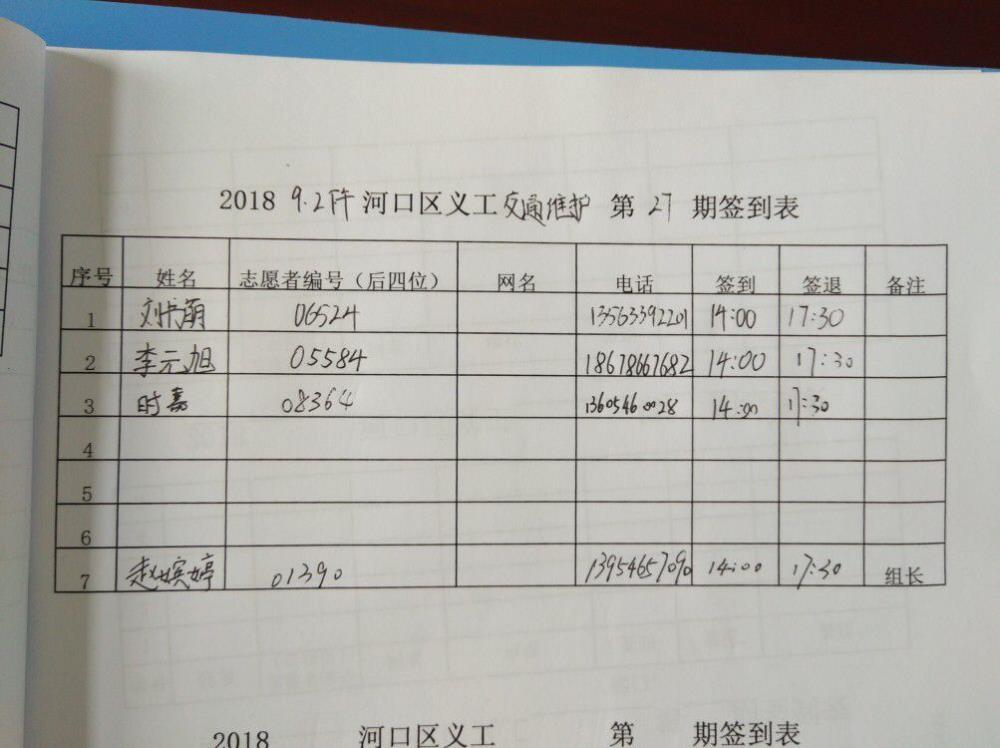 2018 9.2下午 河口区义工 交通维护 第 27 期签到表
序号 姓名 志愿者编号（后四位） 网名 电话 签到 签退 备注
1 刘书萌 06524 13563392201 14:00 17:30
2 李元旭 05584 18678667682 14:00 17:30
3 时嘉 08364 13605460028 14:00 17:30
4
5
6
7 赵嫔婷 01390 13954657090 14:00 17:30 组长
2018 河口区义工 第 期签到表